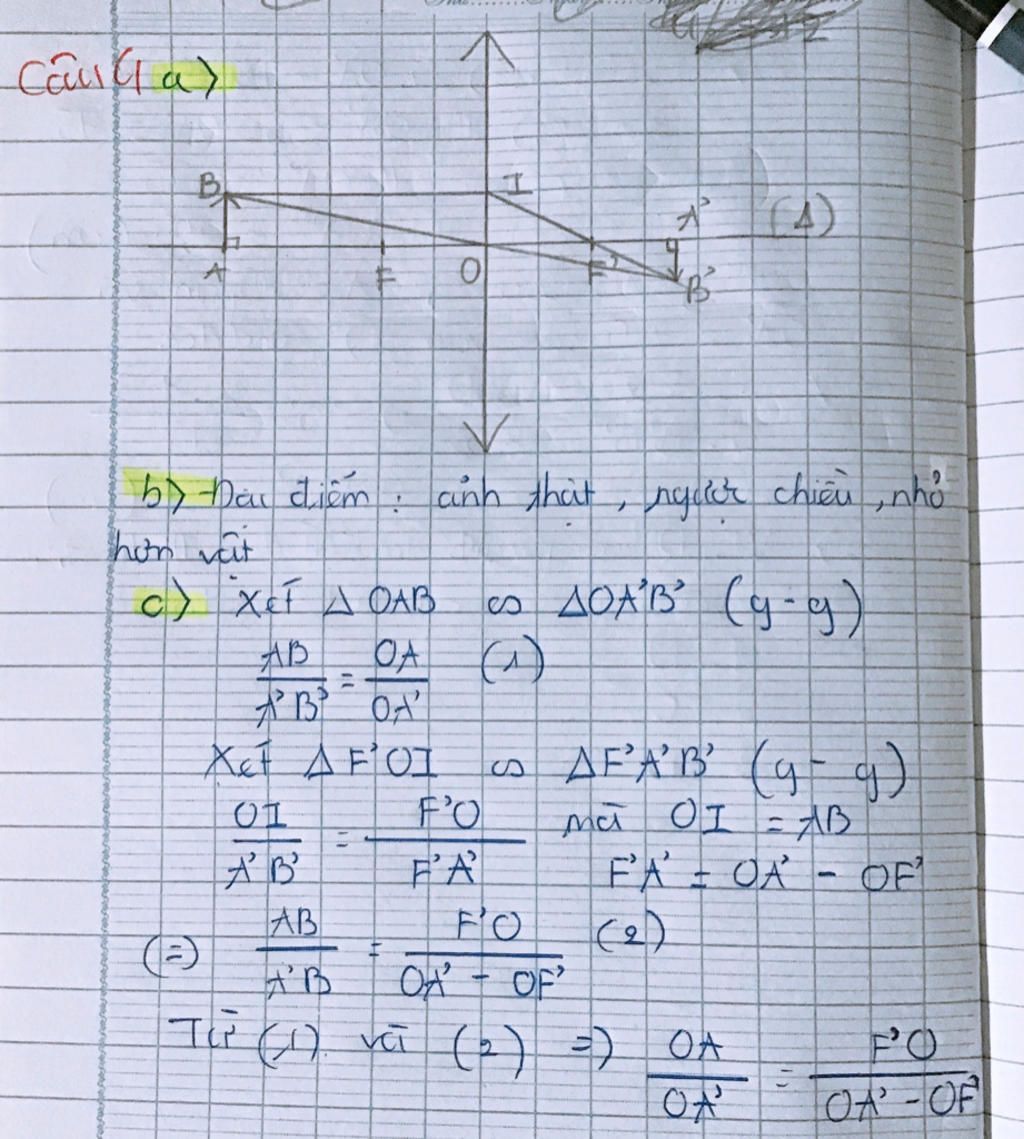 Câu 4 a)
B I A' (Δ)
A F O F' B'
b) Đặc điểm : ảnh thật , ngược chiều , nhỏ
hơn vật
c) Xét Δ OAB ∽ ΔOA'B' (g-g)
AB / A'B' = OA / OA' (1)
Xét Δ F'OI ∽ ΔF'A'B' (g-g)
OI / A'B' = F'O / F'A' mà OI = AB
F'A' = OA' - OF'
(=) AB / A'B = F'O / OA' - OF' (2)
Từ (1) và (2) =) OA / OA' = F'O / OA' - OF'